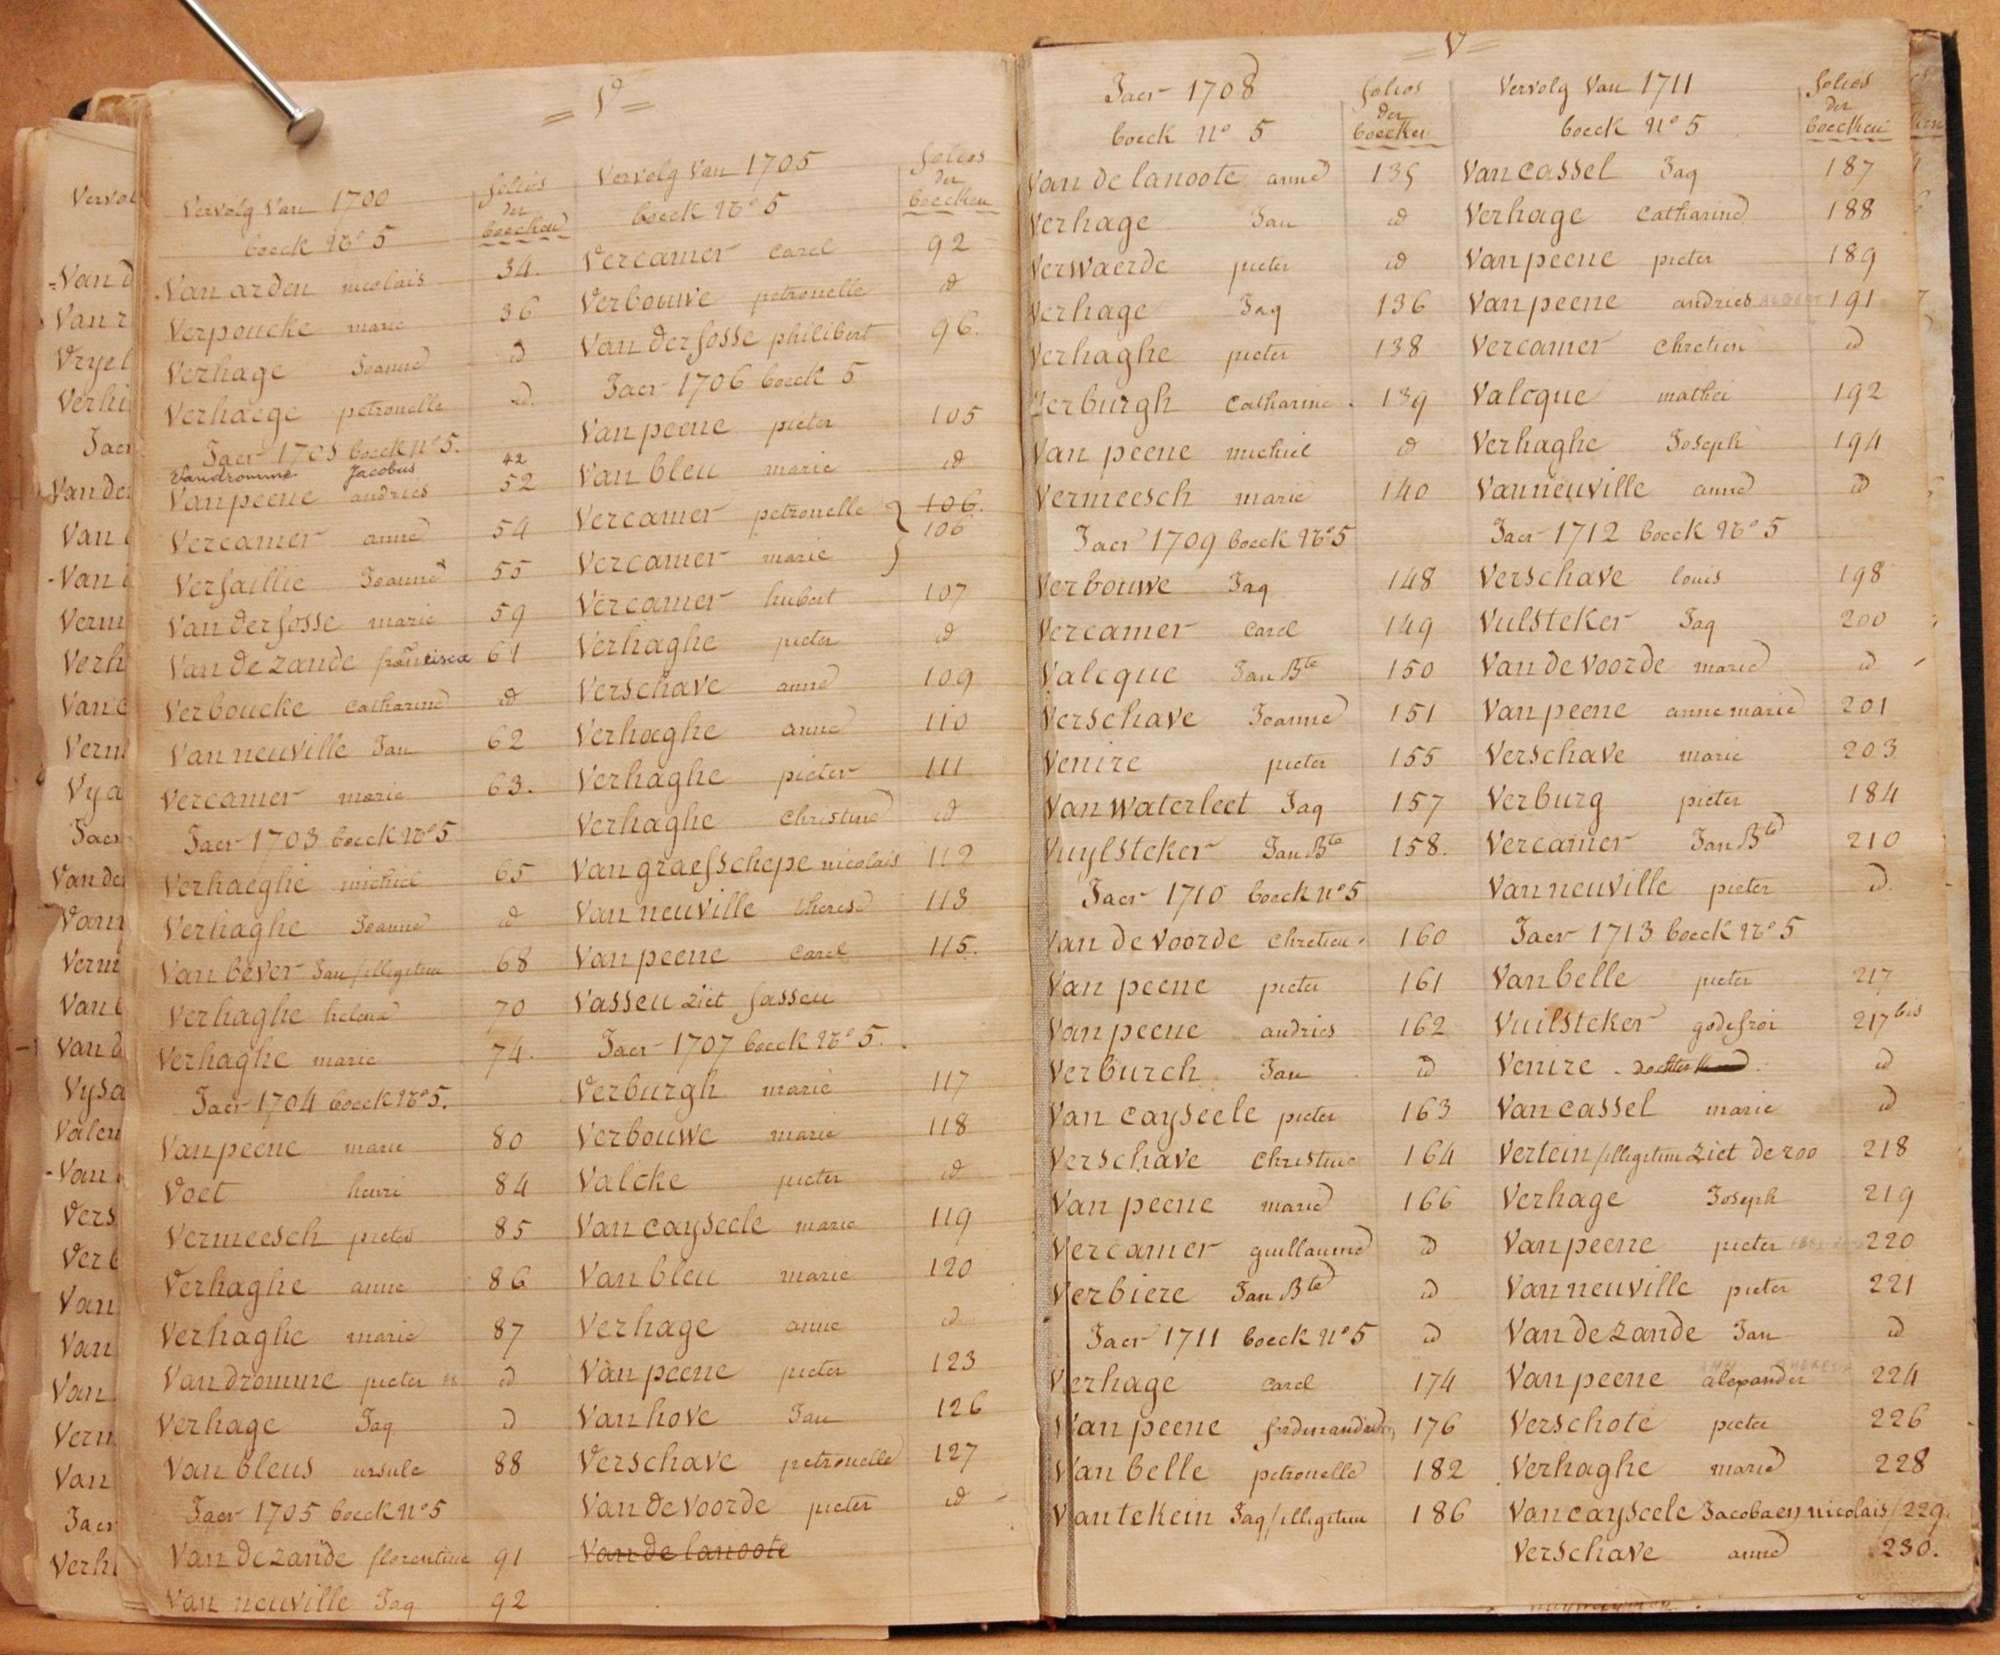 Vervolg Van 1700
boeck No 5
folios
der
boecken
Van arden nicolais 34.
Verpoucke marie 36
Verhage Joanne id
Verhaege petronelle id.
Jaer 1701 boeck no 5.
Vandromme Jacobus 42
Van peene andries 52
Vercamer anne 54
Versaillie Joanne 55
Van der fosse marie 59
Van de zande francisca 61
Verboucke Catharine id
Van neuville Jan 62
Vercamer marie 63.
Jaer 1703 boeck No 5
Verhaeghe michiel 65
Verhaghe Joanne id
Van bever Jan /illegitim 68
Verhaghe helena 70
Verhaghe marie 74.
Jaer 1704 boeck No 5.
Van peene marie 80
Voet henri 84
Vermeesch pieter 85
Verhaghe anne 86
Verhaghe marie 87
Van dromme pieter id
Verhage Jaq id
Van bleus ursule 88
Jaer 1705 boeck no 5
Van de zande florentine 91
Van neuville Jaq 92
Vervolg Van 1705
boeck No 5
folios
der
boecken
Vercamer Carel 92
Verbouwe petronelle id
Van der fosse philibert 96.
Jaer 1706 boeck 5
Van peene pieter 105
Van bleu marie id
Vercamer petronelle } 106.
106
Vercamer marie }
Vercamer hubert 107
Verhaghe pieter id
Verschave anne 109
Verhaeghe anne 110
Verhaghe pieter 111
Verhaghe Christine id
Van graefschepe nicolais 112
Van neuville therese 113
Van peene Carel 115.
Vassen ziet fassen
Jaer 1707 boeck No 5.
Verburgh marie 117
Verbouwe marie 118
Valcke pieter id
Van cayseele marie 119
Van bleu marie 120
Verhage anne id
Van peene pieter 123
Van hove Jan 126
Verschave petronelle 127
Van de Voorde pieter id
Van de lanoote
V
Jaer 1708
boeck No 5
folios
der
boecken
Van de lanoote anne 135
Verhage Jan id
Verwaerde pieter id
Verhage Jaq 136
Verhaghe pieter 138
Verburgh Catharine 139
Van peene michiel id
Vermeesch marie 140
Jaer 1709 boeck No 5
Verbouwe Jaq 148
Vercamer Carel 149
Valcque Jan Bte 150
Verschave Joanne 151
Venire pieter 155
Van Waterleet Jaq 157
Vuylsteker Jan Bte 158.
Jaer 1710 boeck no 5
Van de Voorde Chretien 160
Van peene pieter 161
Van peene andries 162
Verburch Jan id
Van cayseele pieter 163
Verschave Christine 164
Van peene marie 166
Vercamer guillaume id
Verbiere Jan Bte id
Jaer 1711 boeck no 5 id
Verhage Carel 174
Van peene 176
Van belle petronelle 182
Van tekein Jaq /illegitim 186
Vervolg Van 1711
boeck No 5
folios
der
boecken
Van cassel Jaq 187
Verhage Catharine 188
Van peene pieter 189
Van peene andries 191
Vercamer Chretien id
Valcque mathei 192
Verhaghe Joseph 194
Van neuville anne id
Jaer 1712 boeck No 5
Verschave louis 198
Vulsteker Jaq 200
Van de Voorde marie id
Van peene anne marie 201
Verschave marie 203
Verburg pieter 184
Vercamer Jan Bte 210
Van neuville pieter id.
Jaer 1713 boeck No 5
Van belle pieter 217
Vuilsteker godefroi 217 bis
Venire dochter id
Van cassel marie id
Vertein /illegitim ziet de roo 218
Verhage Joseph 219
Van peene pieter 220
Van neuville pieter 221
Van de zande Jan id
Van peene alexander 224
Verschote pieter 226
Verhaghe marie 228
Van cayseele Jacoba en nicolais / 229.
Verschave anne 230.